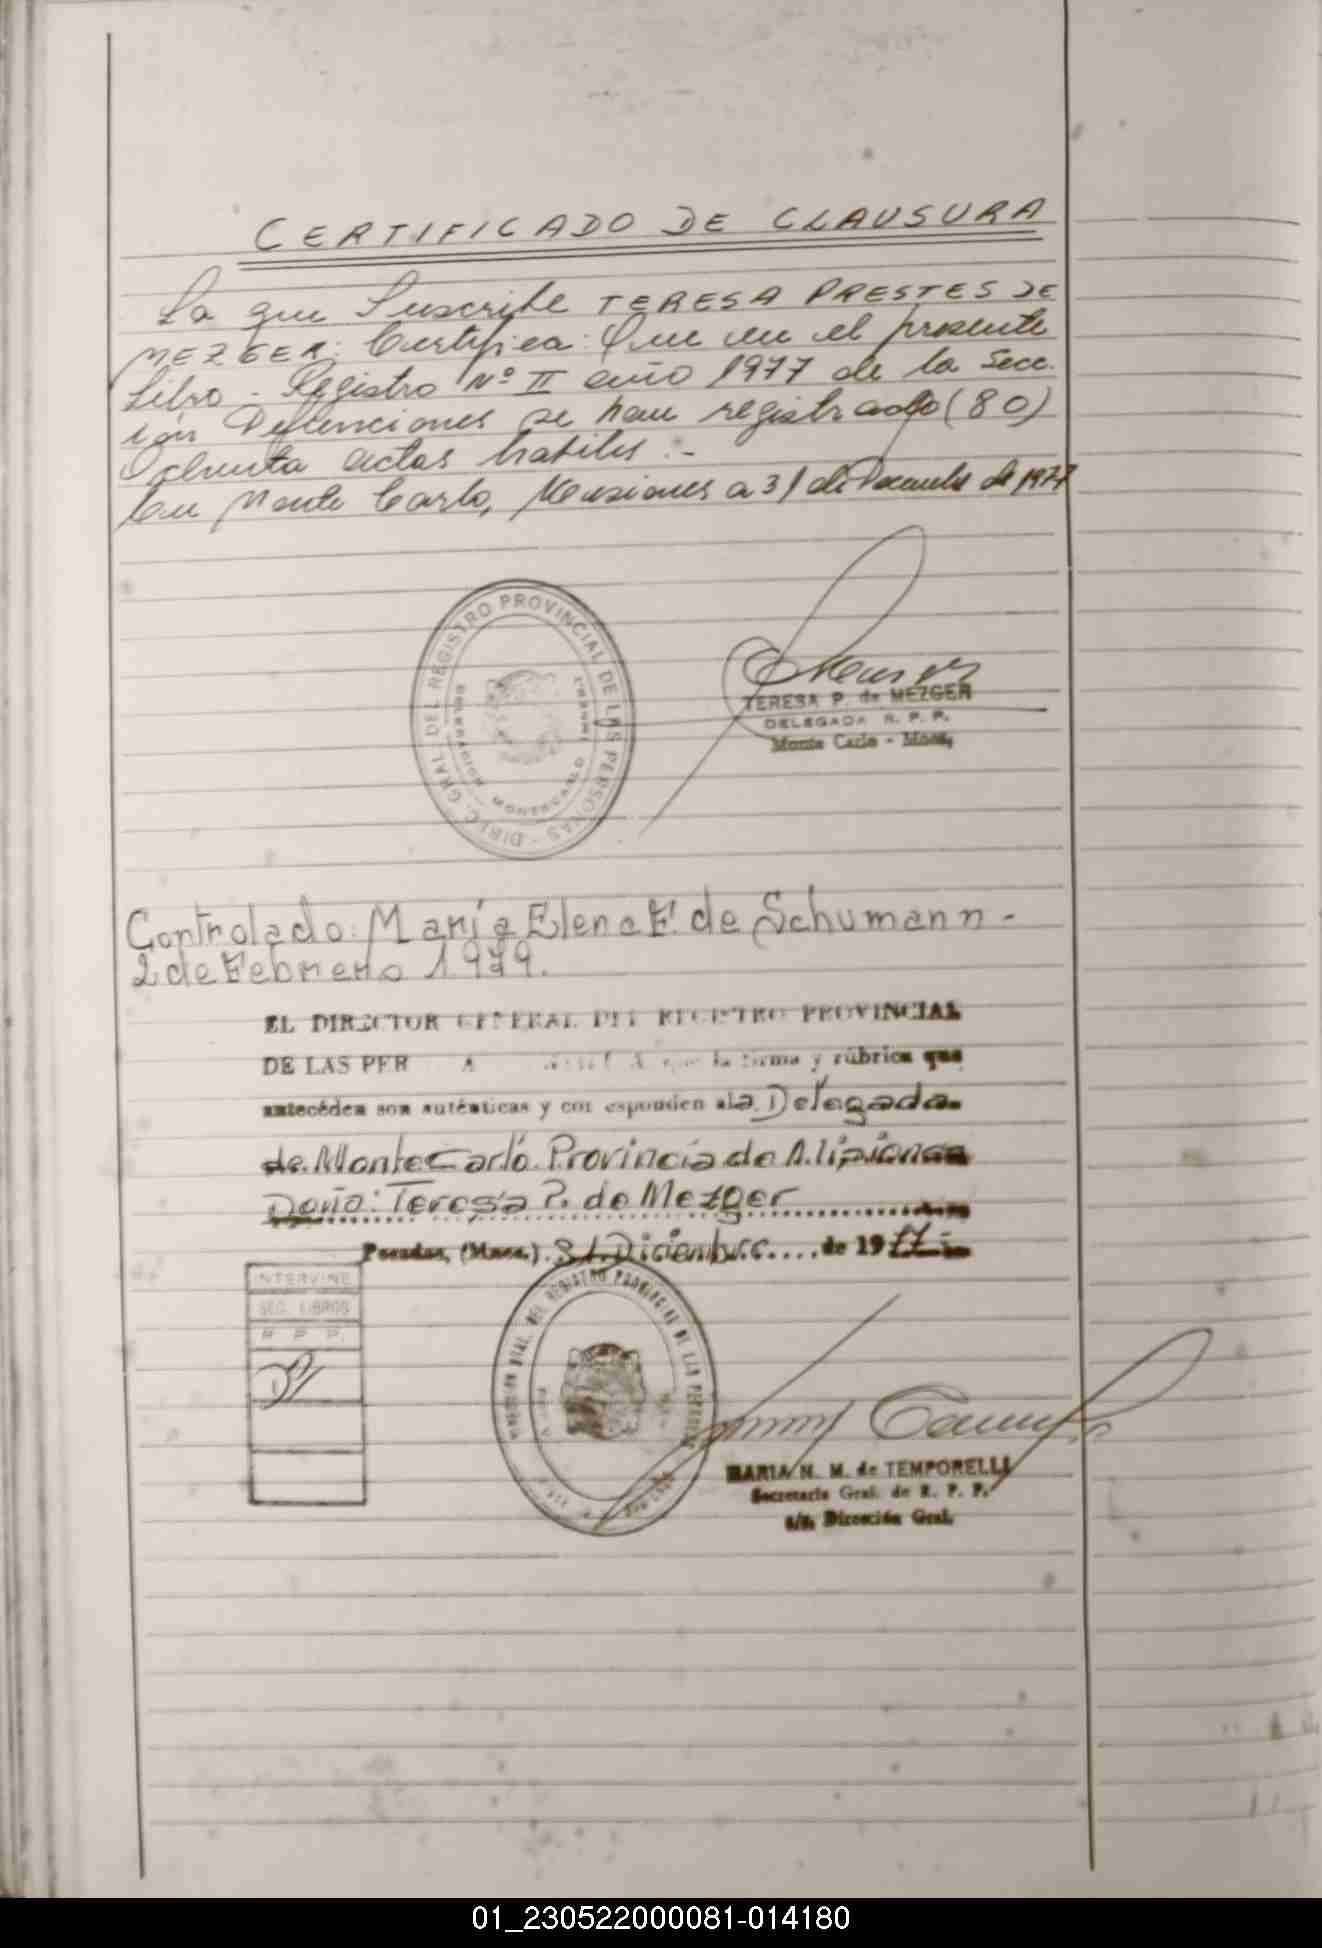 CERTIFICADO DE CLAUSURA
La que Suscribe TERESA PRESTES DE
MEZGER: Certifica: Que en el presente
Libro - Registro Nº II año 1977 de la Secc.
ión Defunciones se han registrado (80)
Ochenta actas habiles :-
En Monte Carlo, Misiones a 31 de Diciembre de 1977
DIREC. GRAL. DEL REGISTRO PROVINCIAL DE LAS PERSONAS -
DELEGACION MONTECARLO
TERESA P. de MEZGER
DELEGADA R. P. P.
Monte Carlo - Mnes.
Controlado: María Elena F. de Schumann -
2 de Febrero 1979.
EL DIRECTOR GENERAL DEL REGISTRO PROVINCIAL
DE LAS PER A que la firma y rúbrica que
anteceden son auténticas y cor esponden a la Delegada
de Monte Carlo Provincia de Misiones
Doña: Teresa P. de Mezger
Posadas, (Mnes.) 31 Diciembre de 1977
INTERVINE
SEC. LIBROS
R P P.
DIRECCION GRAL. DEL REGISTRO PROVINCIAL DE LAS PERSONAS
MARIA N. M. de TEMPORELLI
Secretaria Gral. de R. P. P.
a/c. Dirección Gral.
01_230522000081-014180